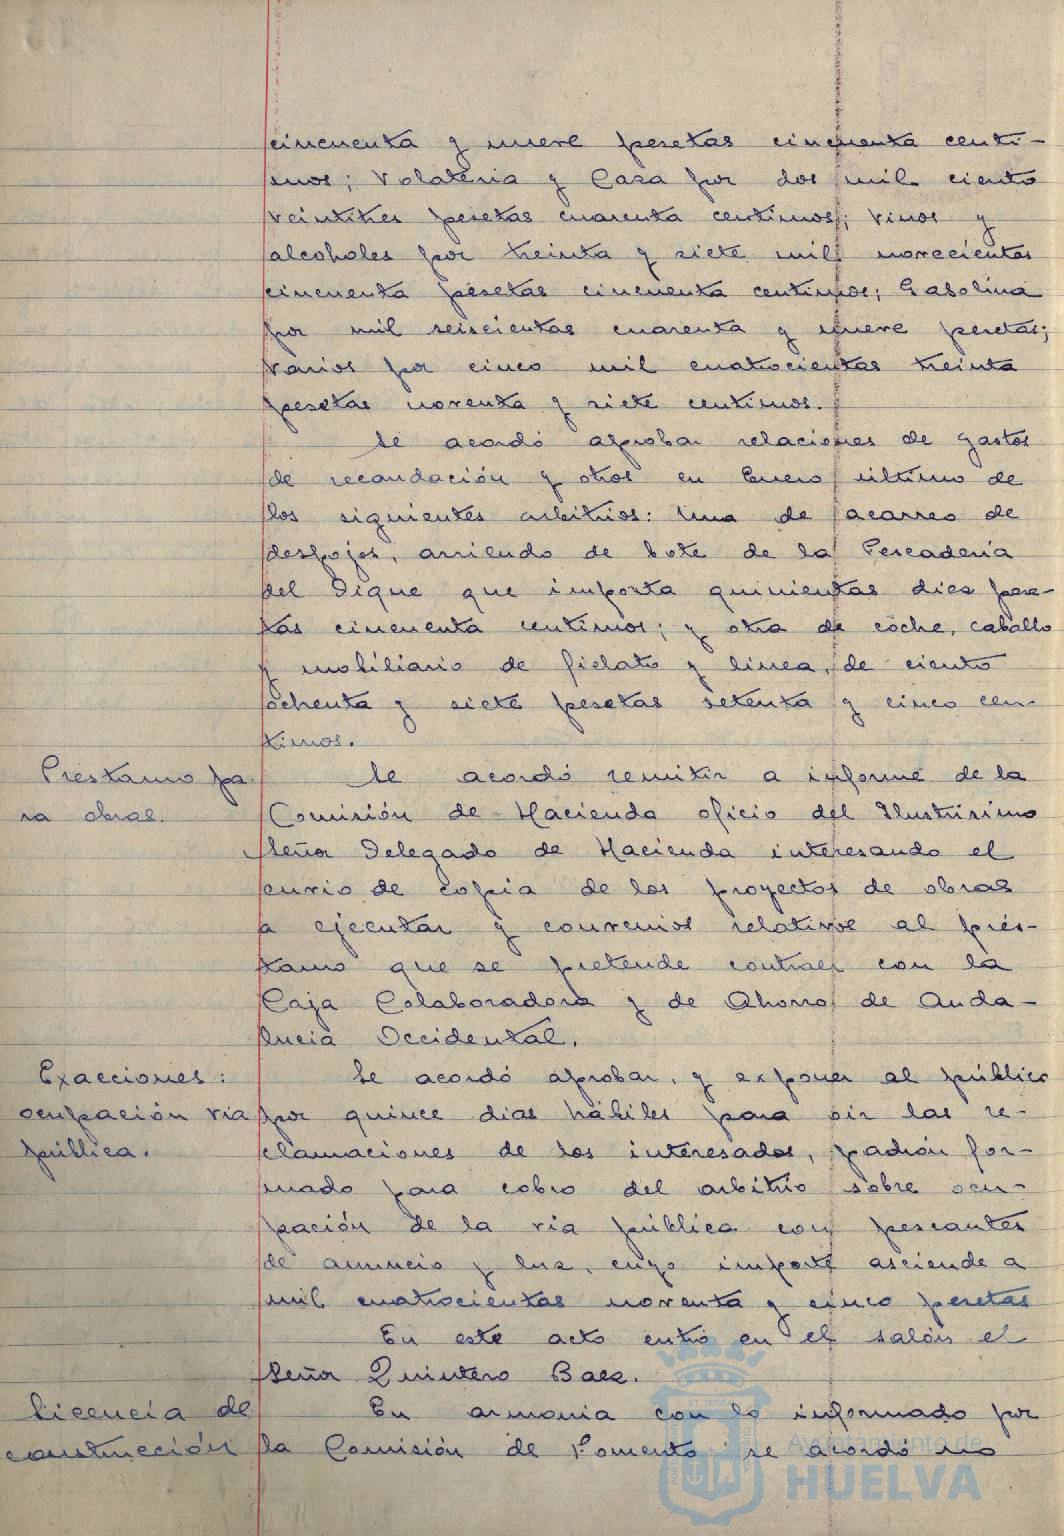 cincuenta y nueve pesetas cincuenta centi-
mos; Volateria y Caza por dos mil ciento
veintitres pesetas cuarenta centimos; vinos y
alcoholes por treinta y siete mil novecientas
cincuenta pesetas cincuenta centimos; Gasolina
por mil seiscientas cuarenta y nueve pesetas;
varios por cinco mil cuatrocientas treinta
pesetas noventa y siete centimos.
Se acordó aprobar relaciones de gastos
de recaudación y otros en Enero último de
los siguientes arbitrios: Una de acarreo de
despojos, arriendo de bote de la Pescaderia
del Dique que importa quinientas diez pese-
tas cincuenta centimos; y otra de coche, caballo
y mobiliario de fielato y linea, de ciento
ochenta y siete pesetas setenta y cinco cen-
timos.
Prestamo pa-
ra obras.
Se acordó remitir a informe de la
Comisión de Hacienda oficio del Ilustrisimo
Señor Delegado de Hacienda interesando el
envio de copia de los proyectos de obras
a ejecutar y convenios relativos al prés-
tamo que se pretende contraer con la
Caja Colaboradora y de Ahorro de Anda-
lucia Occidental.
Exacciones:
ocupación via
pública.
Se acordó aprobar, y exponer al público
por quince dias hábiles para oir las re-
clamaciones de los interesados, padrón for-
mado para cobro del arbitrio sobre ocu-
pación de la via pública con pescantes
de anuncio y luz, cuyo importe asciende a
mil cuatrocientas noventa y cinco pesetas
En este acto entró en el salón el
Señor Quintero Baez.
Licencia de
construcción
En armonia con lo informado por
la Comisión de Fomento se acordó no
Ayuntamiento de
HUELVA